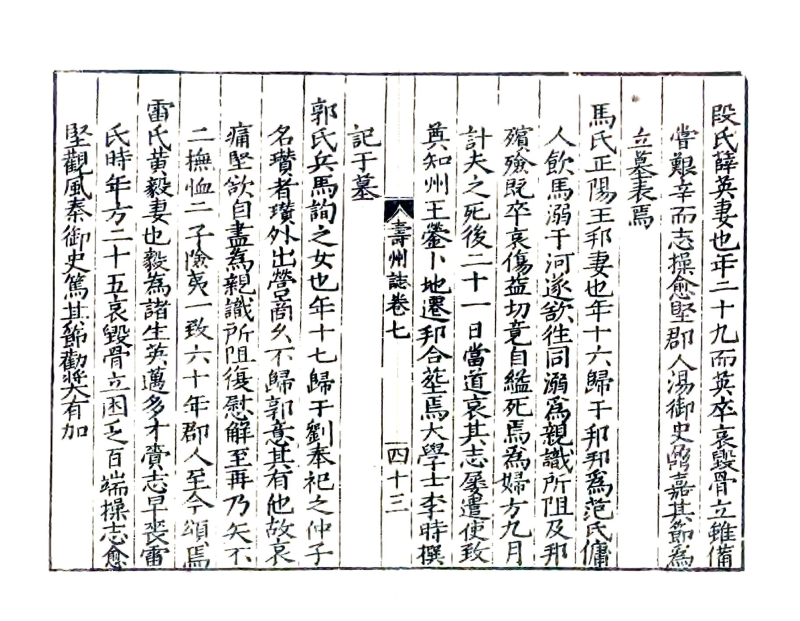 段氏薛英妻也年二十九而英卒哀毀骨立雖備
嘗艱辛而志操愈堅郡人湯御史鼐嘉其節為
立墓表焉
馬氏正陽王邦妻也年十六歸于邦邦為范氏傭
人飲馬溺于河遂欲往同溺為親識所阻及邦
殯殮既卒哀傷益切竟自縊死焉為婦方九月
計夫之死後二十一日當道哀其志屢遣使致
奠知州王鎣卜地遷邦合塟焉大學士李時撰
記于墓
壽州誌卷七
四十三
郭氏兵馬詢之女也年十七歸于劉奉祀之仲子
名瓚者瓚外出營商久不歸郭意其有他故哀
痛堅欲自盡為親識所阻復慰解至再乃矢不
二撫恤二子險夷一致六十年郡人至今頌焉
雷氏黃毅妻也毅為諸生英邁多才賫志早喪雷
氏時年方二十五哀毀骨立困乏百端操志愈
堅觀風秦御史篤其節勸奬大有加